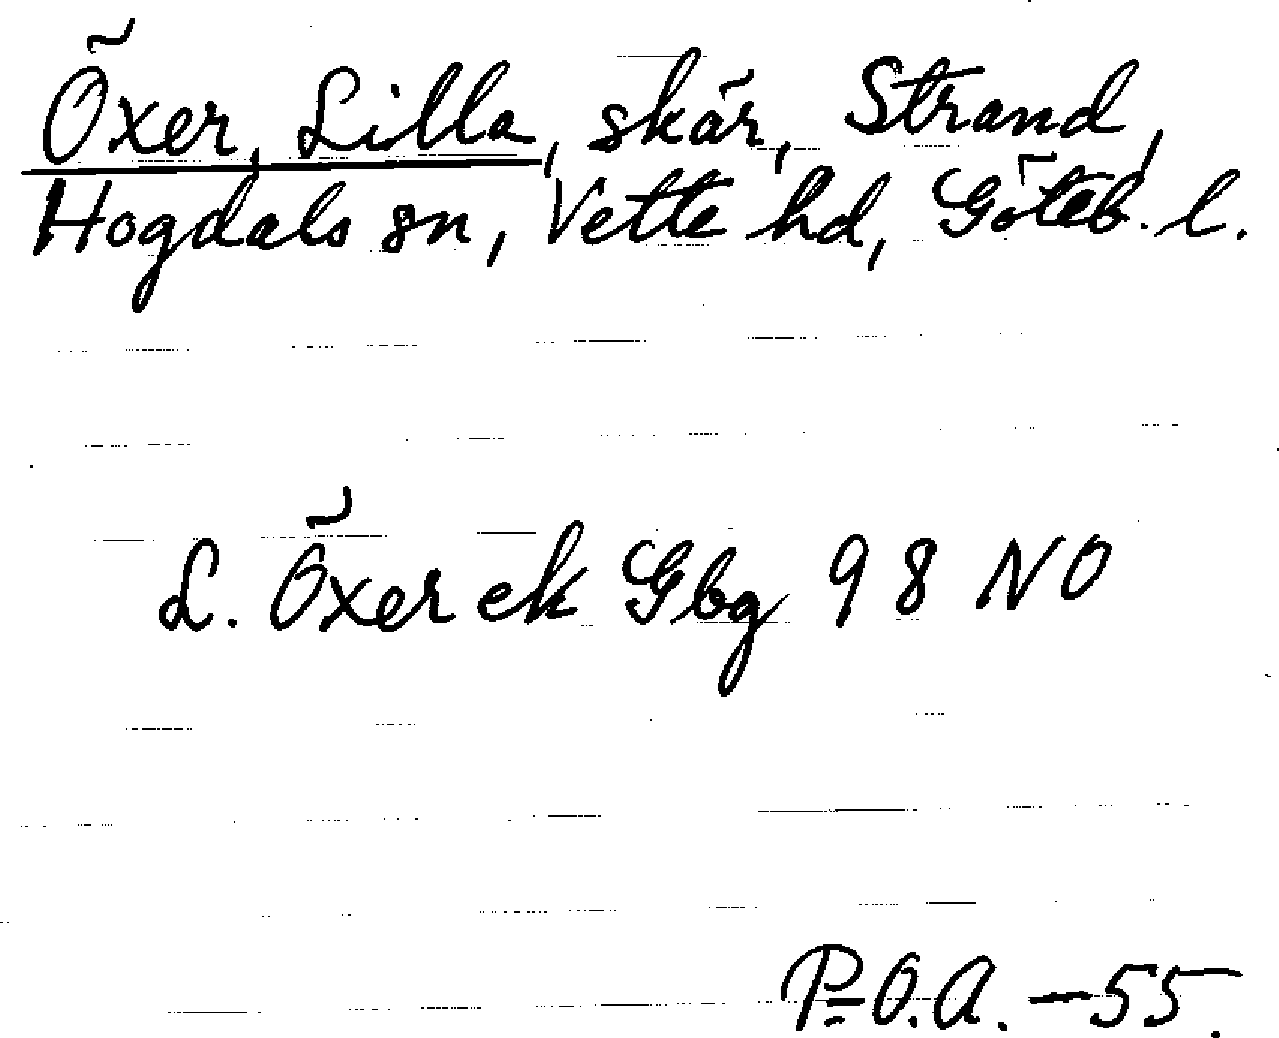 Öxer, Lilla, skär, Strand,
Hogdals sn, Vette hd, Göteb. l.
L. Öxer ek Gbg 98 NO
P-O.A. -55.